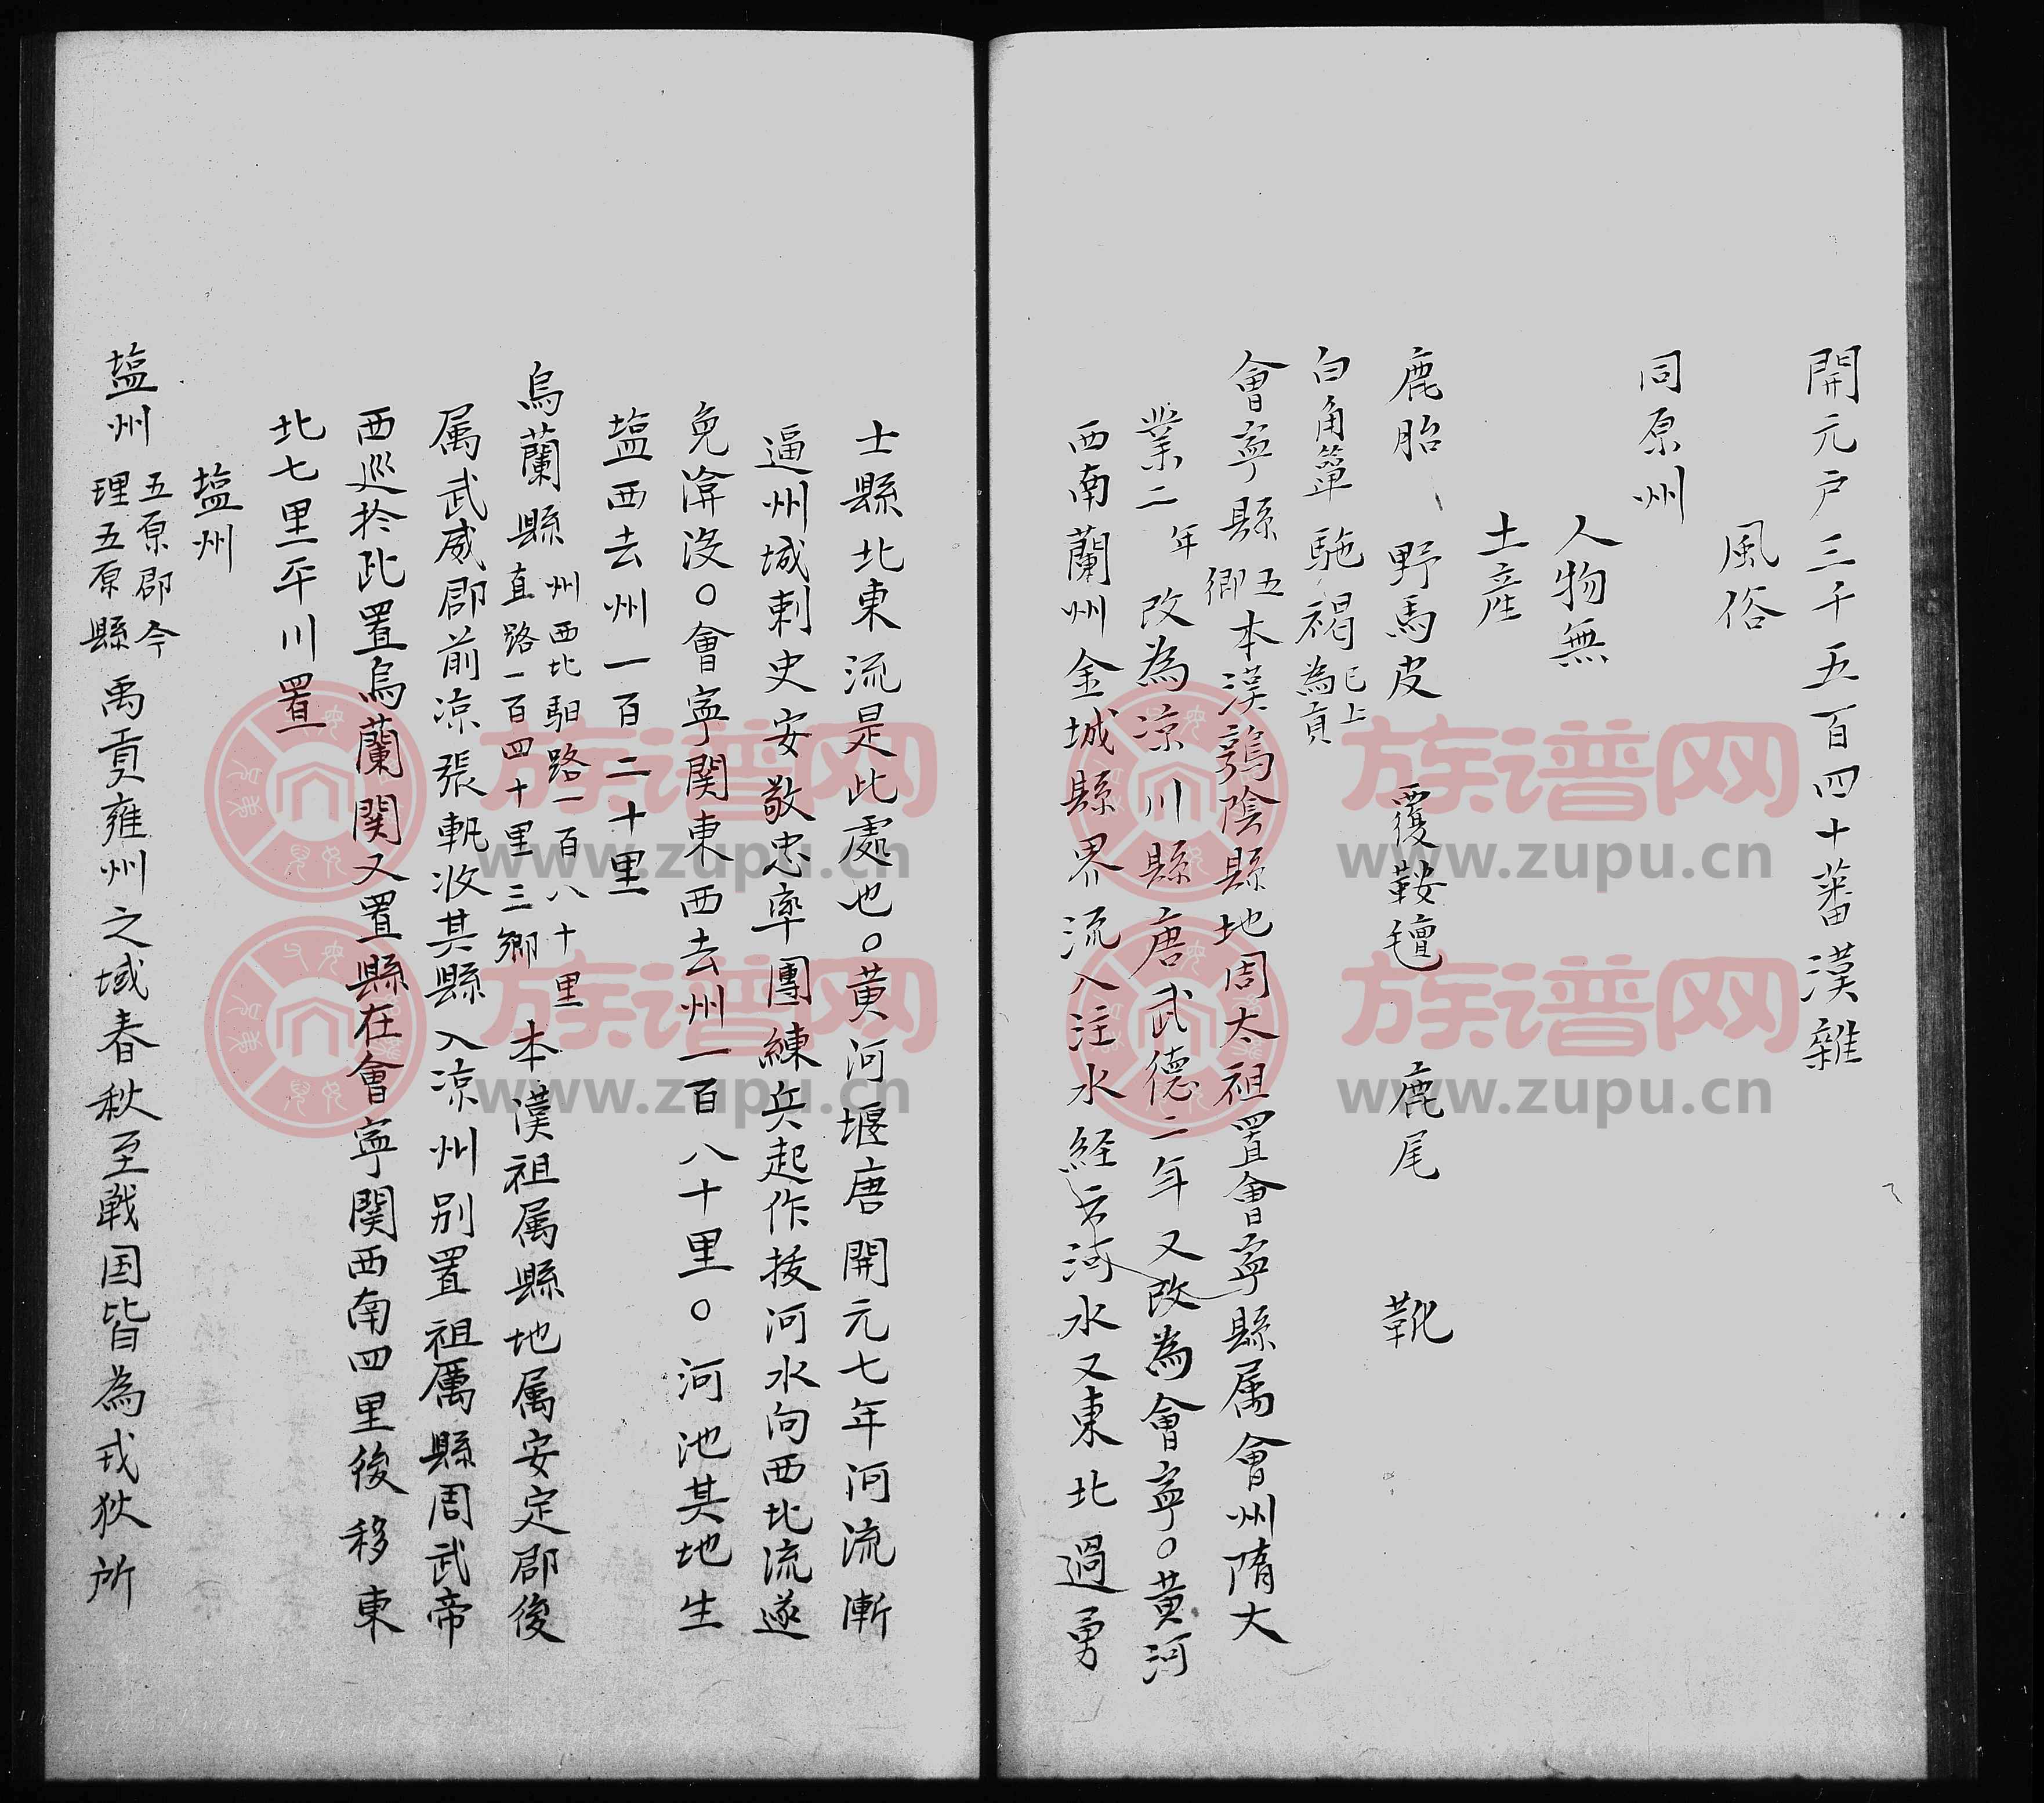 開元戸三千五百四十蕃漢雜
風俗
同原州
人物無
土産
鹿胎 野馬皮 覆鞍氊 鹿尾 靴
白角簟駞褐已上為貢
會寧縣五鄉本漢鶉陰縣地周太祖置會寧縣属會州隋大
業二年改為凉川縣唐武德二年又改為會寧○黄河
西南蘭州金城縣界流入注水経云河水又東北過勇
士縣北東流是此處也○黄河堰唐開元七年河流漸
逼州城刺史安敬忠率團練兵起作拔河水向西北流遂
免渰沒○會寧関東西去州一百八十里○河池其地生
塩西去州一百二十里
烏蘭縣州西北駅路一百八十里直路一百四十里三鄉本漢祖属縣地属安定郡後
属武威郡前凉張軌收其縣入凉州别置祖厲縣周武帝
西巡於此置烏蘭関又置縣在會寧関西南四里後移東
北七里平川置
塩州
塩州五原郡今理五原縣禹貢雍州之域春秋至戦国皆為戎狄所
族谱网
www.zupu.cn
族谱网
www.zupu.cn
族谱网
www.zupu.cn
族谱网
www.zupu.cn